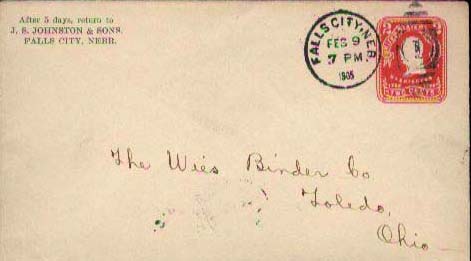 After 5 days, return to
J. S. JOHNSTON & SONS.
FALLS CITY, NEBR.
FALLS CITY, NEB.
FEB 9
7 PM
1905
TWO CENTS
The Wies Binder Co
Toledo,
Ohio